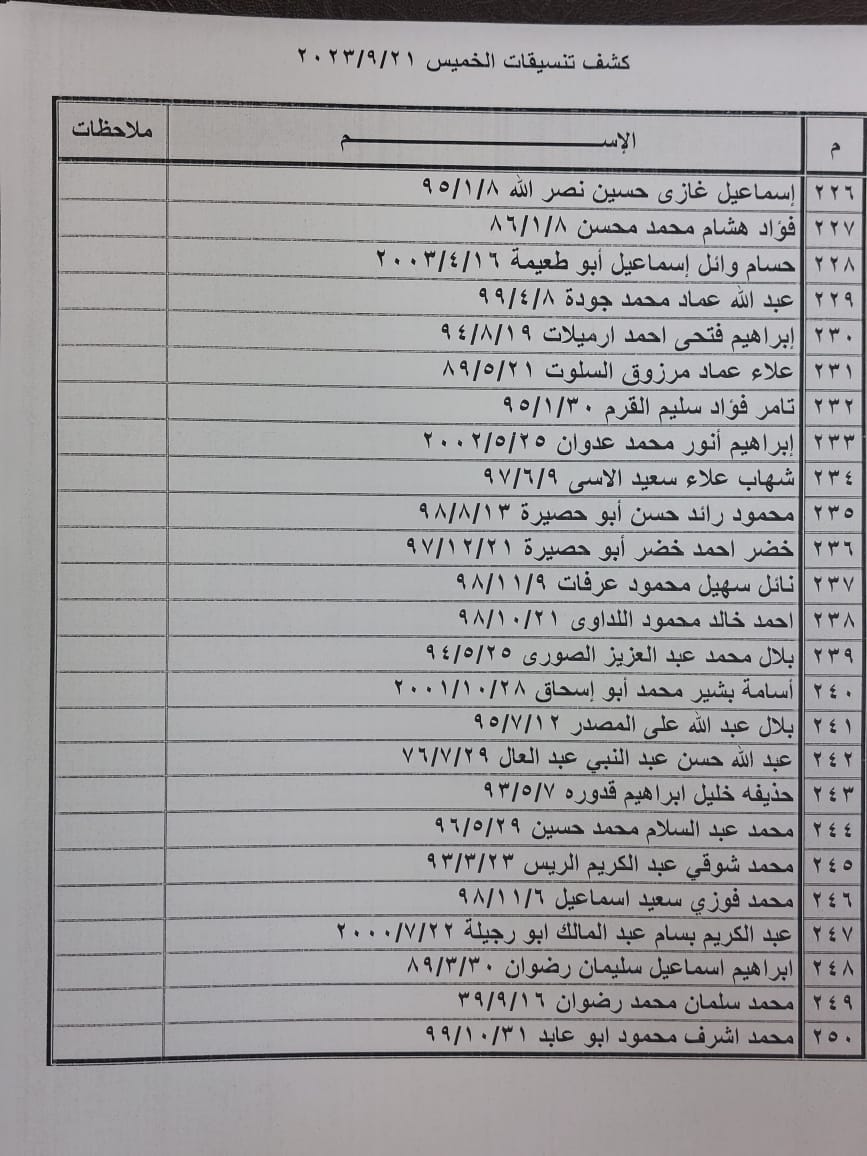 كشف تنسيقات الخميس ٢٠٢٣/٩/٢١
م الإســـــــم ملاحظات
٢٢٦ إسماعيل غازى حسين نصر الله ٩٥/١/٨
٢٢٧ فؤاد هشام محمد محسن ٨٦/١/٨
٢٢٨ حسام وائل إسماعيل أبو طعيمة ٢٠٠٣/٤/١٦
٢٢٩ عبد الله عماد محمد جودة ٩٩/٤/٨
٢٣٠ إبراهيم فتحى احمد ارميلات ٩٤/٨/١٩
٢٣١ علاء عماد مرزوق السلوت ٨٩/٥/٢١
٢٣٢ تامر فؤاد سليم القرم ٩٥/١/٣٠
٢٣٣ إبراهيم أنور محمد عدوان ٢٠٠٢/٥/٢٥
٢٣٤ شهاب علاء سعيد الاسى ٩٧/٦/٩
٢٣٥ محمود رائد حسن أبو حصيرة ٩٨/٨/١٣
٢٣٦ خضر احمد خضر أبو حصيرة ٩٧/١٢/٢١
٢٣٧ نائل سهيل محمود عرفات ٩٨/١١/٩
٢٣٨ احمد خالد محمود اللداوى ٩٨/١٠/٢١
٢٣٩ بلال محمد عبد العزيز الصورى ٩٤/٥/٢٥
٢٤٠ أسامة بشير محمد أبو إسحاق ٢٠٠١/١٠/٢٨
٢٤١ بلال عبد الله على المصدر ٩٥/٧/١٢
٢٤٢ عبد الله حسن عبد النبي عبد العال ٧٦/٧/٢٩
٢٤٣ حذيفه خليل ابراهيم قدوره ٩٣/٥/٧
٢٤٤ محمد عبد السلام محمد حسين ٩٦/٥/٢٩
٢٤٥ محمد شوقي عبد الكريم الريس ٩٣/٣/٢٣
٢٤٦ محمد فوزي سعيد اسماعيل ٩٨/١١/٦
٢٤٧ عبد الكريم بسام عبد المالك ابو رجيلة ٢٠٠٠/٧/٢٢
٢٤٨ ابراهيم اسماعيل سليمان رضوان ٨٩/٣/٣٠
٢٤٩ محمد سلمان محمد رضوان ٣٩/٩/١٦
٢٥٠ محمد اشرف محمود ابو عابد ٩٩/١٠/٣١